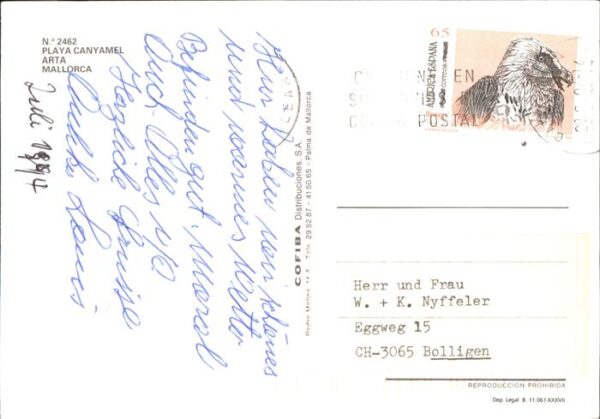 N.º 2462
PLAYA CANYAMEL
ARTA
MALLORCA
Juli 1994
Hier haben wir schönes
und warmes Wetter
Befinden gut. Moral
auch. Alles i/O
Herzliche Grüsse
Louis
COFIBA Distribuciones, S.A.
Tels. 29 52 87 - 41 50 65 - Palma de Mallorca
65
ESPAÑA
CORREOS
POSTAL
Herr und Frau
W. + K. Nyffeler
Eggweg 15
CH-3065 Bolligen
REPRODUCCION PROHIBIDA
Dep. Legal B. 11.061-XXXVII